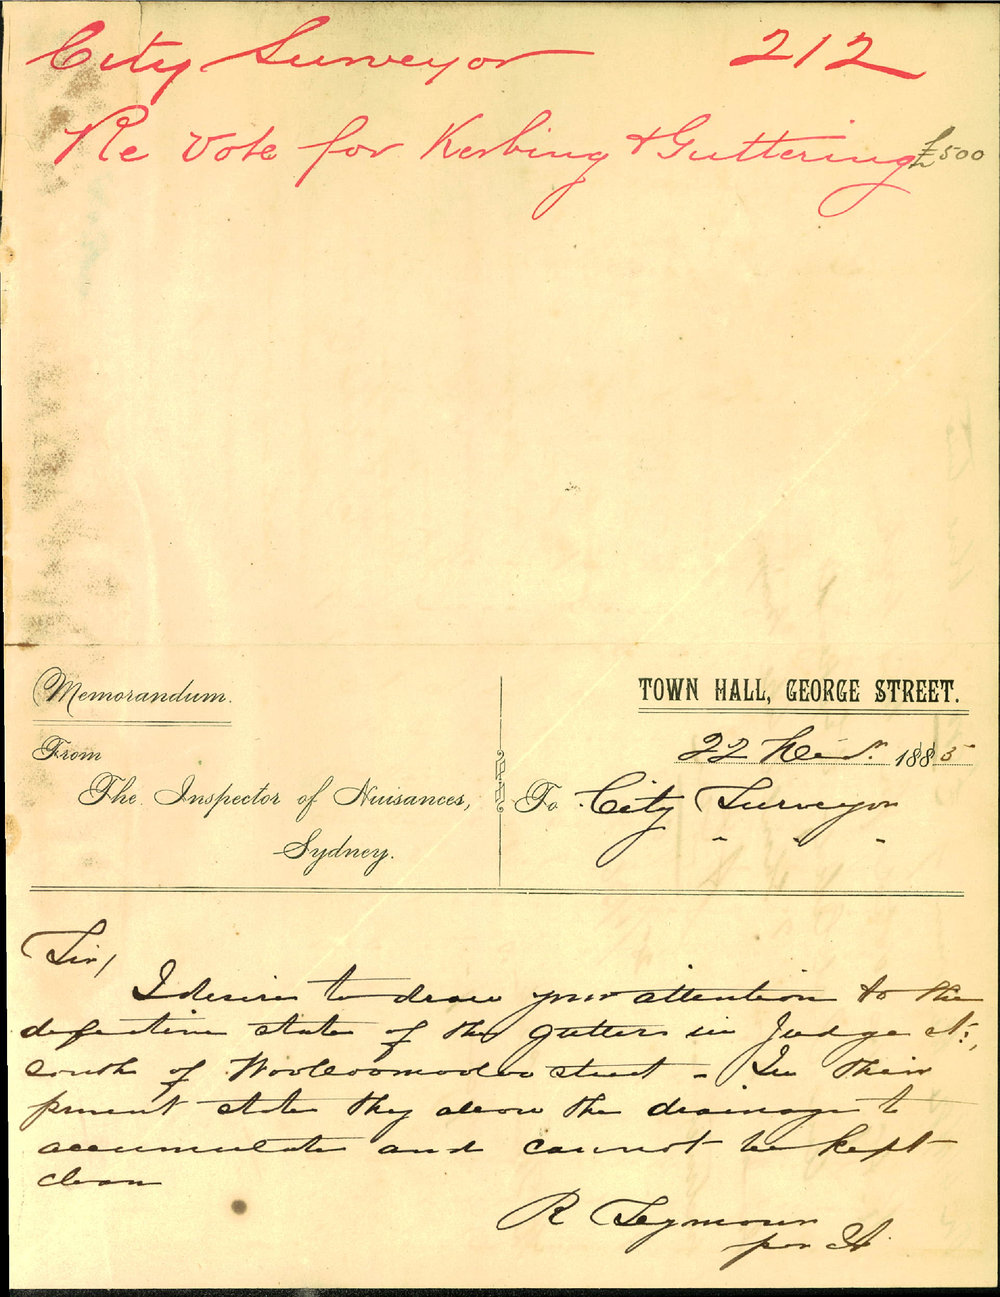 City Surveyor 212
Re Vote for Kerbing & Guttering £500
Memorandum.
TOWN HALL, GEORGE STREET.
From
22 1885
The Inspector of Nuisances,
To City Surveyor
Sydney.
Sir,
I desire to draw your attention to the
defective state of the gutters in Judge St.,
south of Woolloomooloo street - In their
present state they allow the drainage to
accumulate and cannot be kept
clean
R Seymour
per